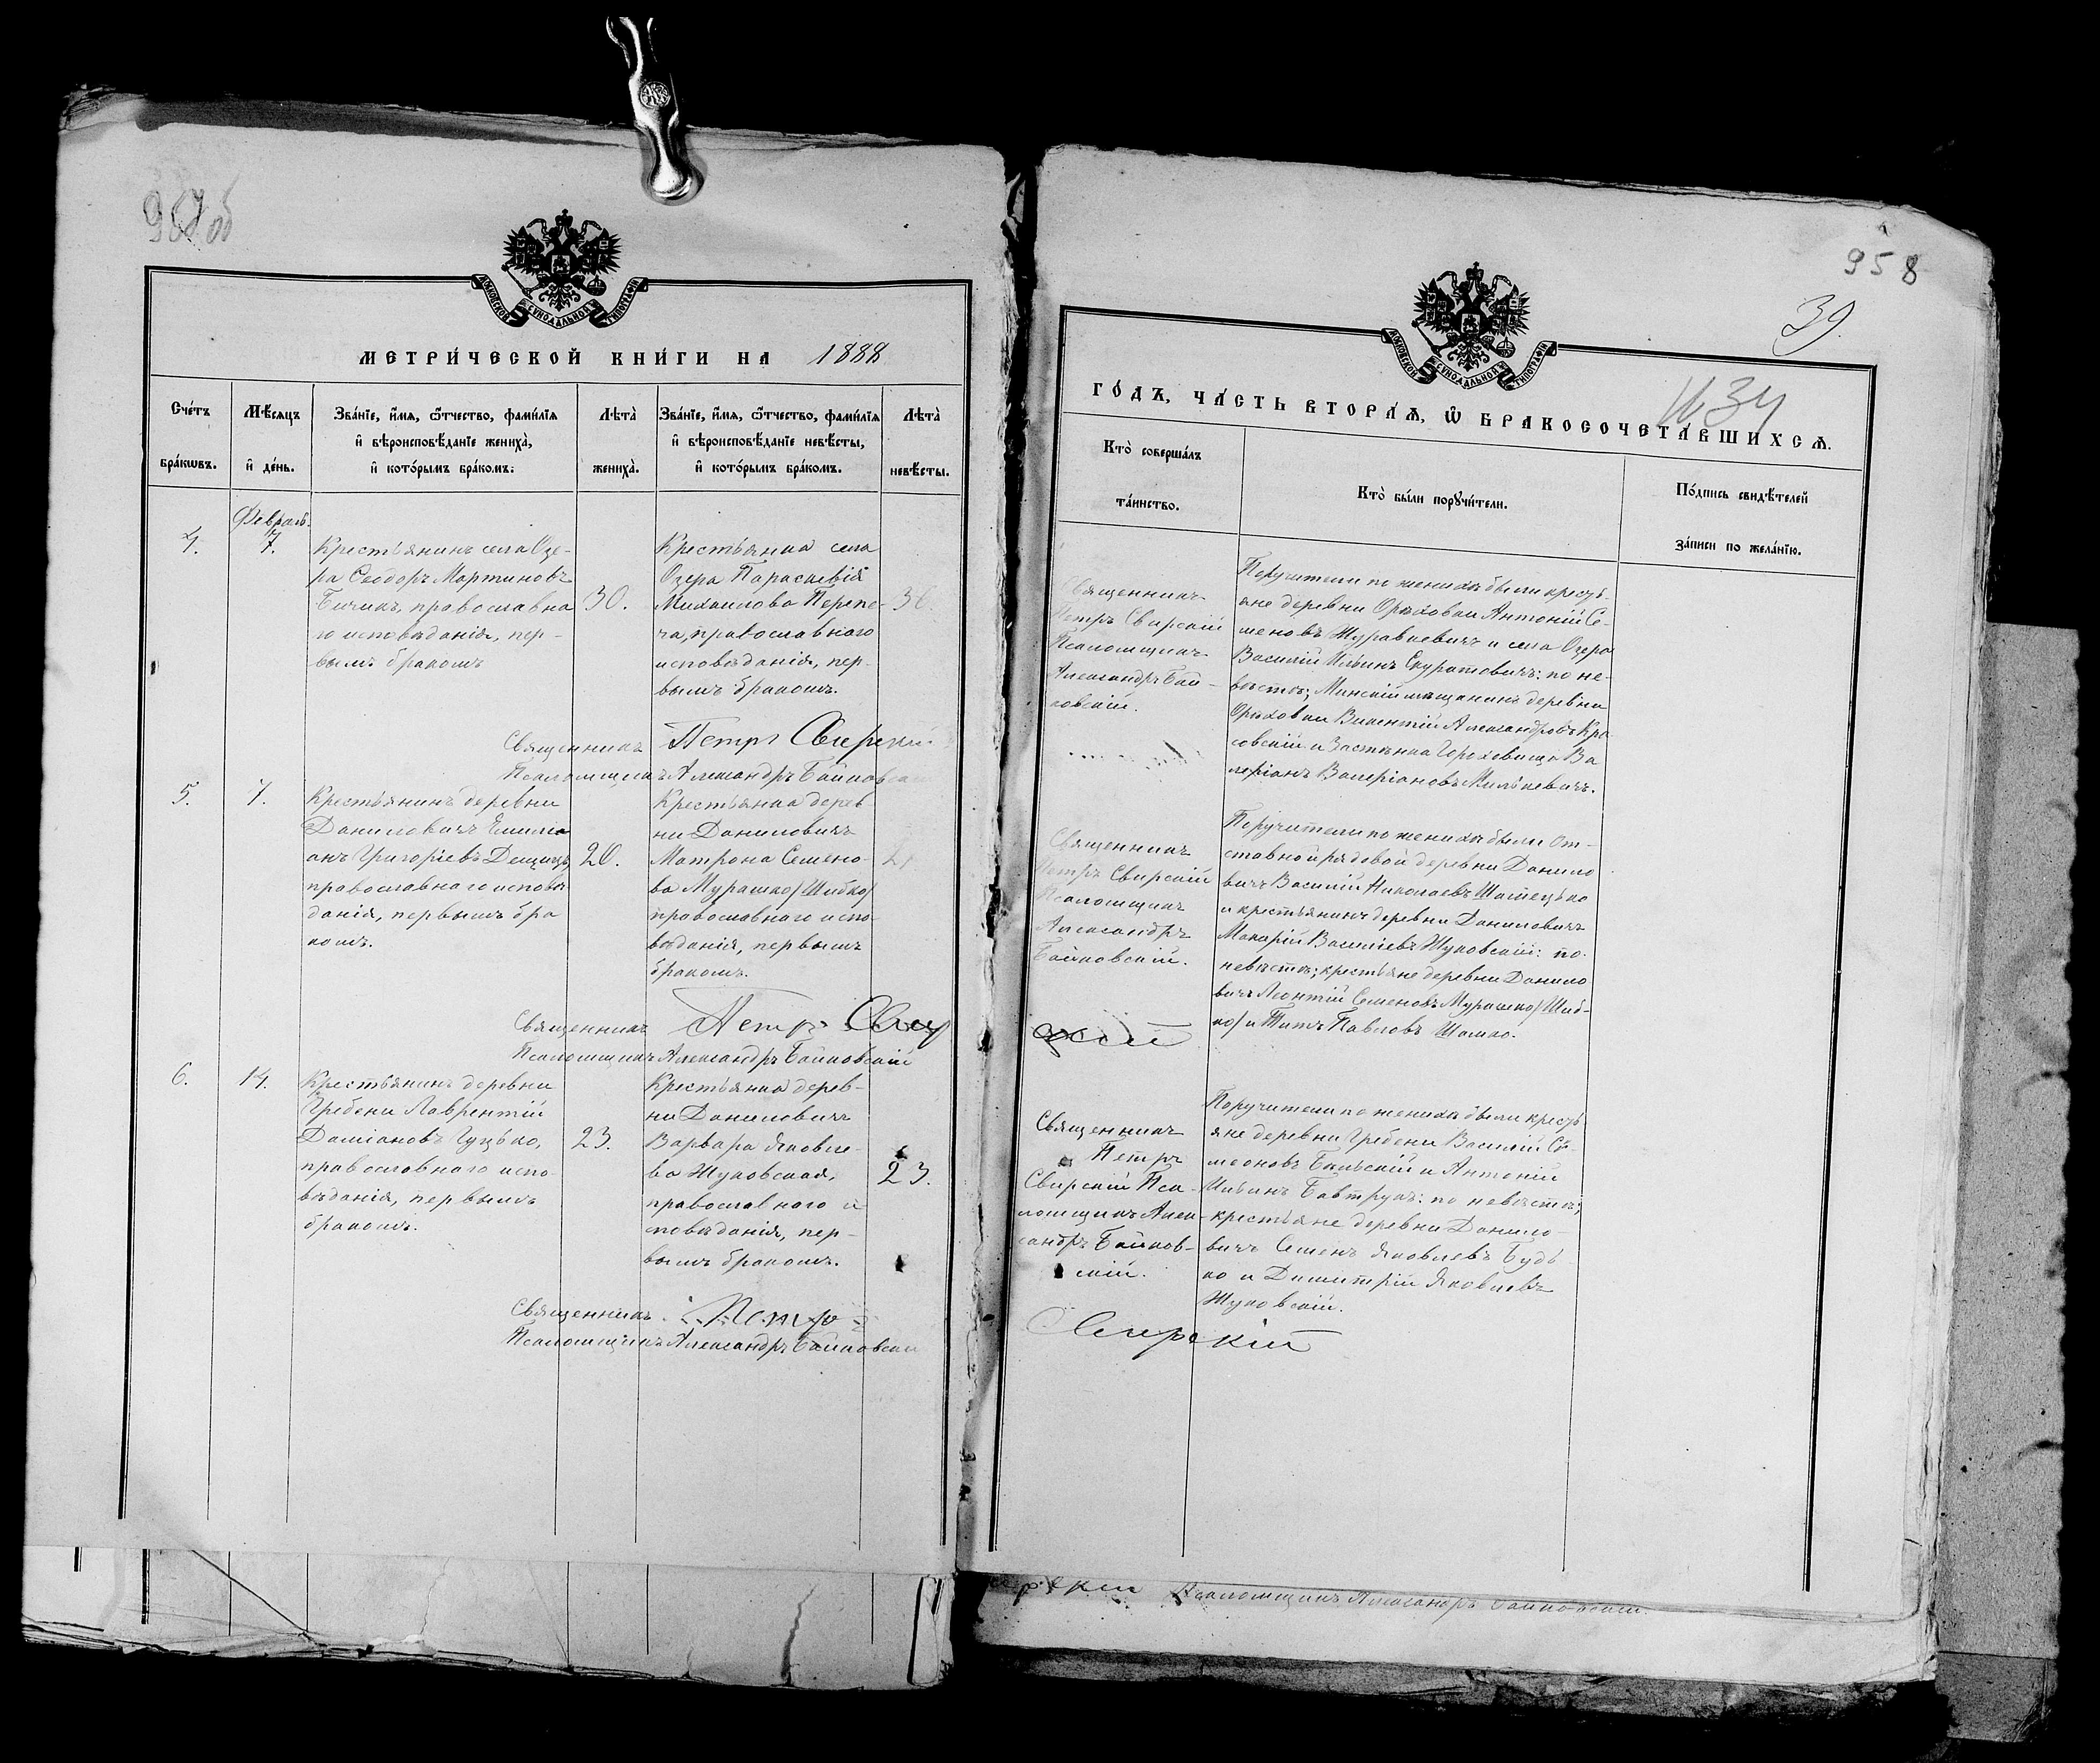 958
39.
МОСКОВСКОЙ СѴНОДАЛЬНОЙ ТИПОГРАФІИ
МЕТРИ́ЧЕСКОЙ КНИ́ГИ НА 1888
Сче́тъ бра́кѡвъ.
Мѣ́сяцъ и҆ де́нь.
Зва́нїе, и҆́мѧ, ѻ҆́тчество, фами́лїѧ
и҆ вѣроисповѣ́данїе жениха̀,
и҆ кото́рымъ бра́комъ.
Лѣта̀ жениха̀.
Зва́нїе, и҆́мѧ, ѻ҆́тчество, фами́лїѧ
и҆ вѣроисповѣ́данїе невѣ́сты,
и҆ кото́рымъ бра́комъ.
Лѣта̀ невѣ́сты.
Февраль.
4.
7.
Крестьянинъ села Озе-
ра Ѳеодоръ Мартиновъ
православна
го исповѣданія, пер-
вымъ бракомъ
30.
Крестьянка села
Озера Параскевія
Михаилова Перепе-
ча, православнаго
исповѣданія, пер-
вымъ бракомъ.
Священникъ Петръ Свирскій
Псаломщикъ Александръ Байковскій
5.
7.
Крестьянинъ деревни
Даниловичъ Емилі
анъ Григоріевъ
православнаго исповѣ
данія, первымъ бра
комъ.
20.
Крестьянка дерев
ни Даниловичъ
Матрона Семено-
ва Мурашко/Шибко/
православнаго испо-
вѣданія, первымъ
бракомъ.
Священникъ Петръ Свир
Псаломщикъ Александръ Байковскій
6.
14.
Крестьянинъ деревни
Гребени Лаврентій
Даміановъ Гуцько,
православнаго испо-
вѣданія, первымъ
бракомъ.
23.
Крестьянка дерев-
ни Даниловичъ
Варвара Яковле-
ва Жуковская,
православнаго и
сповѣданія, пер-
вымъ бракомъ.
23.
Священникъ Петръ
Псаломщикъ Александръ Байковскій
МОСКОВСКОЙ СѴНОДАЛЬНОЙ ТИПОГРАФІИ
ГО́ДЪ, ЧА́СТЬ ВТОРА́Ѧ, Ѡ҆ БРАКОСОЧЕТА́ВШИХСѦ.
Кто̀ соверша́лъ
та́инство.
Кто̀ бы́ли порꙋчи́тели.
По́дпись свидѣ́телей
за́писи по жела́нїю.
Священникъ
Петръ Свирскій
Псаломщикъ
Александръ Бай-
ковскій.
Поручители по женихѣ были кресть-
яне деревни Орѣховки Антоній Се-
меновъ Журавкевичъ и села Озера
Василій Ильинъ Скуратовичъ: по не-
вѣстѣ; Минскій мѣщанинъ деревни
Орѣховки Викентій Александровъ Кра-
совскій и Застѣнка Гороховища Ва
леріанъ Валеріановъ Милькевичъ.
Священникъ
Петръ Свирскій
Псаломщикъ
Александръ
Байковскій.
Поручители по женихѣ были от-
ставной рядовой деревни Данило
вичъ Василій Николаевъ
и крестьянинъ деревни Даниловичъ
Макарій Василіевъ Жуковскій: по
невѣстѣ; крестьяне деревни Данило
вичъ Леонтій Семеновъ Мурашко/Шиб-
ко/ и Титъ Павловъ Шашко.
скій
Священникъ
Петръ
Свирскій Пса-
ломщикъ Алек-
сандръ Байков-
скій.
Поручители по женихѣ были кресть
яне деревни Гребени Василій Си-
меоновъ Бѣльскій и Антоній
Ильинъ Бавтрукъ: по невѣстѣ;
крестьяне деревни Данило-
вичъ Семенъ Яковлевъ Будь
ко и Димитрій Яковлевъ
Жуковскій.
Свирскій
Псаломщикъ Александръ Байковскій.